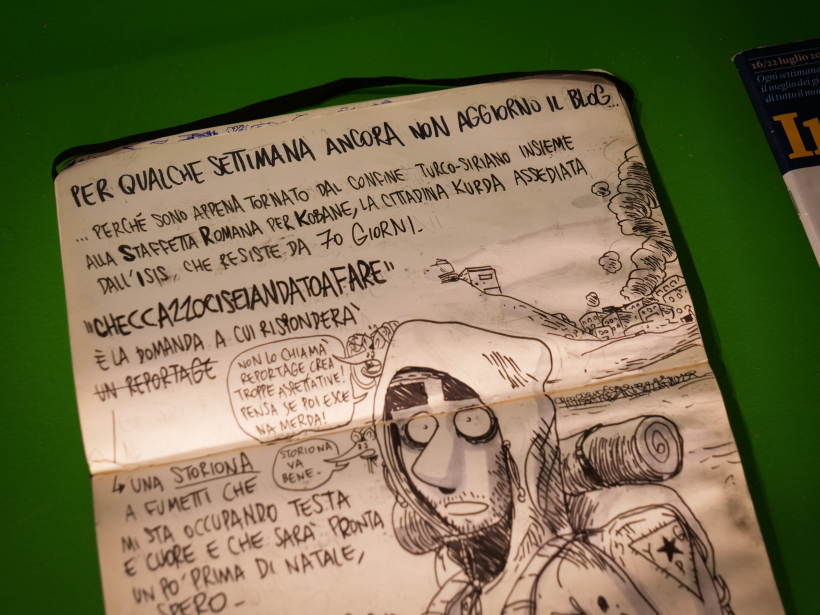 PER QUALCHE SETTIMANA ANCORA NON AGGIORNO IL BLOG...
... PERCHÉ SONO APPENA TORNATO DAL CONFINE TURCO-SIRIANO INSIEME
ALLA STAFFETTA ROMANA PER KOBANE, LA CITTADINA KURDA ASSEDIATA
DALL'ISIS CHE RESISTE DA 70 GIORNI.
"CHECCAZZOCISEIANDATOAFARE"
È LA DOMANDA A CUI RISPONDERÀ
UN REPORTAGE
NON LO CHIAMÀ
REPORTAGE CREA
TROPPE ASPETTATIVE!
PENSA SE POI ESCE
NA MERDA!
STORIONA
VA
BENE.
UNA STORIONA
A FUMETTI CHE
MI STA OCCUPANDO TESTA
E CUORE E CHE SARÀ PRONTA
UN PO' PRIMA DI NATALE,
SPERO-
16/22 luglio
Ogni settimana
il meglio dei gi
di tutto il mo
In